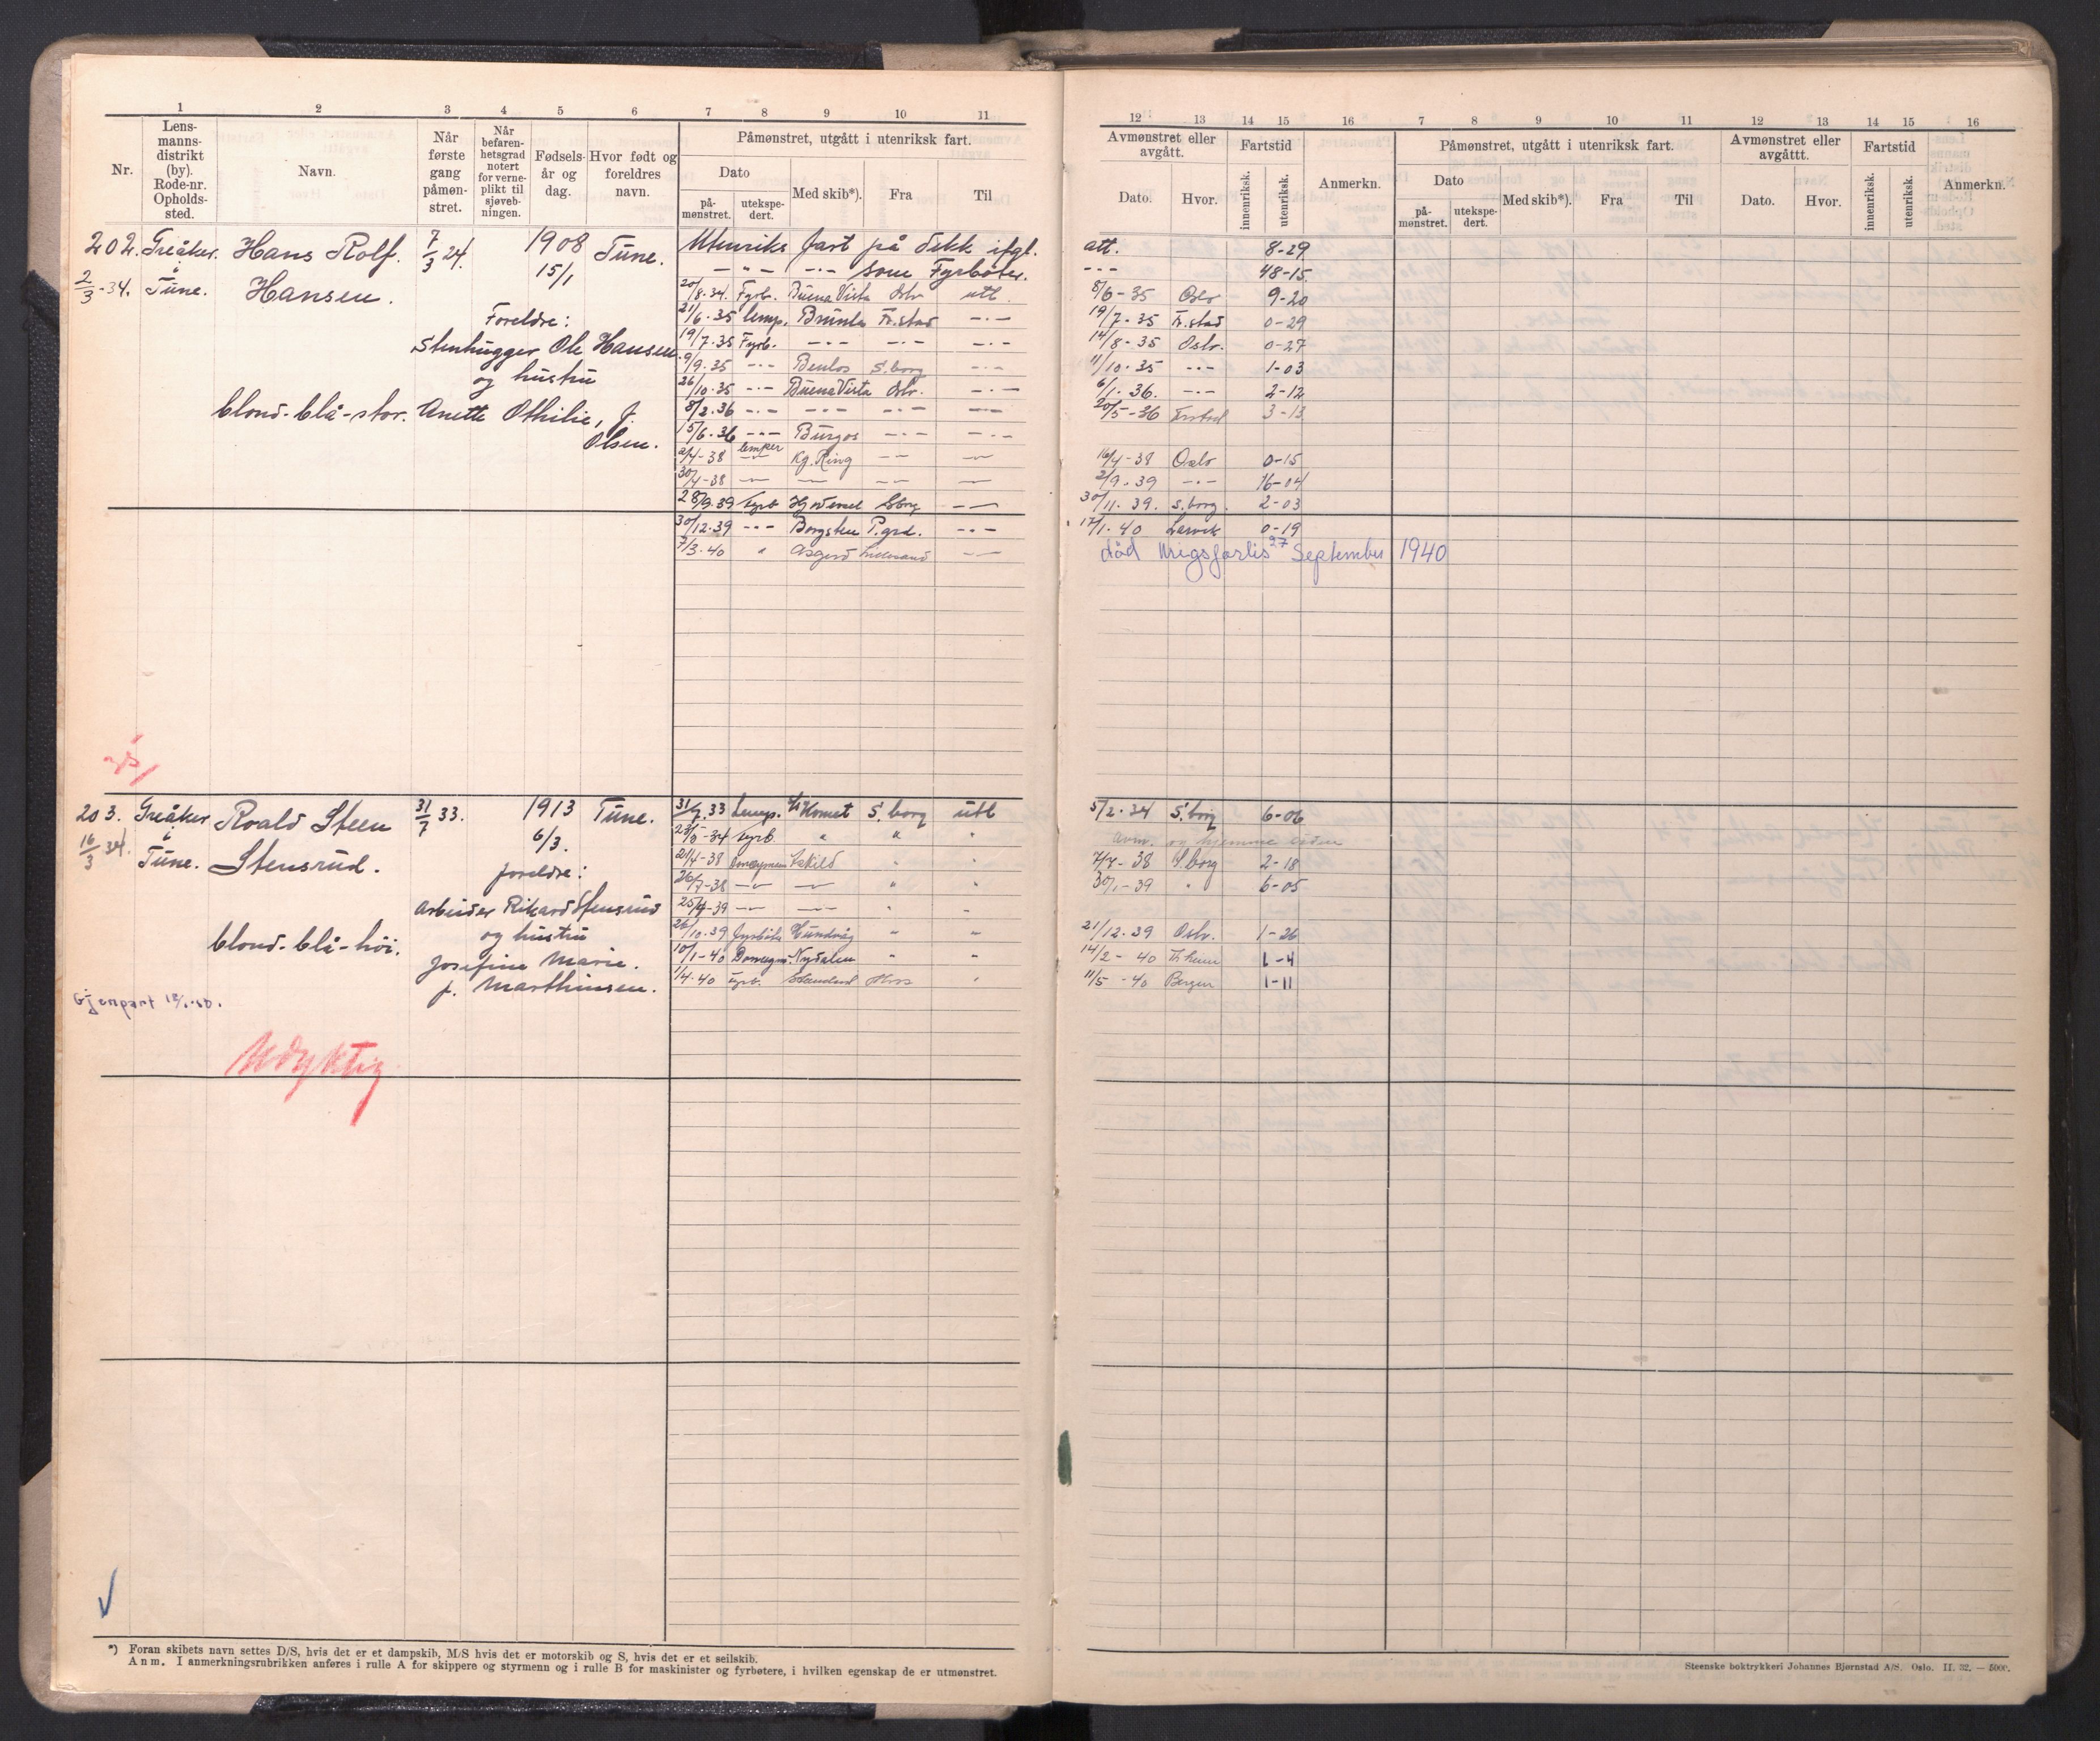 1 2 3 4 5 6 7 8 9 10 11
Nr.
Lens-
manns-
distrikt
(by).
Rode-nr.
Opholds-
sted.
Navn.
Når
første
gang
påmøn-
stret.
Når
befaren-
hetsgrad
notert
for verne-
plikt til
sjøveb-
ningen.
Fødsels-
år og
dag.
Hvor født og
foreldres
navn.
Påmønstret, utgått i utenriksk fart.
Dato
på-
mønstret.
utekspe-
dert.
Med skib*).
Fra
Til
202. Greåker Hans Rolf. 7/3 24. 1908 Tune. Utenriks fart på dekk ifgl.
2/3-34. i Tune. Hansen. 15/1 — " — — " — som Fyrbøter.
20/8-34. Fyrb. Buena Vista Oslo utl.
Foreldre: 21/6-35 lemp. Brünla Fr.stad — " —
Stenhugger Ole Hansen 19/7-35 Fyrb. — " — — " — — " —
9/9.35 — " — Benlos S.borg — " —
og hustru 26/10.35 — " — Buena Vista Oslo. — " —
blond-blå-stor. Anette Othilie, f. 8/2.36 — " — — " — — " — — " —
Olsen. 15/6.36 — " — Burgos — " — — " —
2/4-38 lemper Kg. Ring — " — — " —
30/4-38 — " — — " — — " — — " —
28/9.39 Fyrb Sborg — " —
30/12.39 — " — Borgsten P.grd. — " —
7/3.40 " Asgerd Lillesand — " —
203. Greåker Roald Steen 31/7 33. 1913 Tune. 31/7.33 Lemp. Komet S.borg utl
16/3 34. i Tune. Stensrud. 6/3. 23/5-34 Fyrb. " "
foreldre: 21/4-38 Donkeymann Eskild " "
26/7-38 — " — — " — " "
Arbeider Rikard Stensrud 25/4-39 — " — — " — " "
og hustru 26/10.39 fyrbøter Hundvåg " "
blond-blå-høi. Josefine Marie. 10/1-40 Donkeym. Nydalen " "
f. Marthinsen. 1/4.40 fyrb.
Gjenpart
Udyktig
*) Foran skibets navn settes D/S, hvis det er et dampskib, M/S hvis det er motorskib og S, hvis det er et seilskib.
Anm. I anmerkningsrubrikken anføres i rulle A for skippere og styrmenn og i rulle B for maskinister og fyrbøtere, i hvilken egenskap de er utmønstret.
12 13 14 15 16 7 8 9 10 11 12 13 14 15 16
Avmønstret eller
avgått.
Dato. Hvor.
Fartstid
innenriksk. utenriksk.
Anmerkn.
Påmønstret, utgått i utenriksk fart.
Dato
på-
mønstret.
utekspe-
dert.
Med skib*). Fra Til
Avmønstret eller
avgåttt.
Dato. Hvor.
Fartstid
innenriksk. utenriksk.
Anmerkn.
att. 8-29
— " — 48-15
8/6-35 Oslo 9-20
19/7-35 Fr.stad 0-29
14/8-35 Oslo. 0-27
11/10.35 — " — 1-03
6/1.36. — " — 2-12
20/5-36 Frstad 3-13
16/4-38 Oslo 0-15
2/9.39 — " — 16-04
30/11.39. S.borg. 2-03
17/1.40 Larvik 0-19
død krigsforlis 27 September 1940
5/2.34 S.borg 6-06
avm. og hjemme siden
7/7-38 S.borg 2-18
30/1-39 " 6-05
21/12.39 Oslo. 1-26
14/2-40 1-4
11/5-40 Bergen 1-11
Steenske boktrykkeri Johannes Bjørnstad A/S. Oslo. II. 32. — 5000.